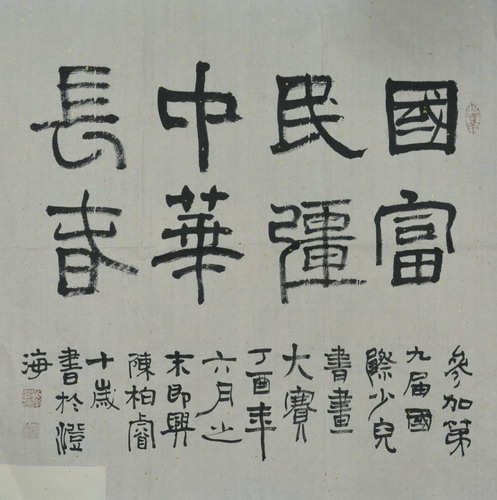 國富
民彊
中華
長春
參加第
九届國
際少兒
書畫
大賽
丁酉年
六月之
末即興
陳柏睿
十歲
書於澄
海